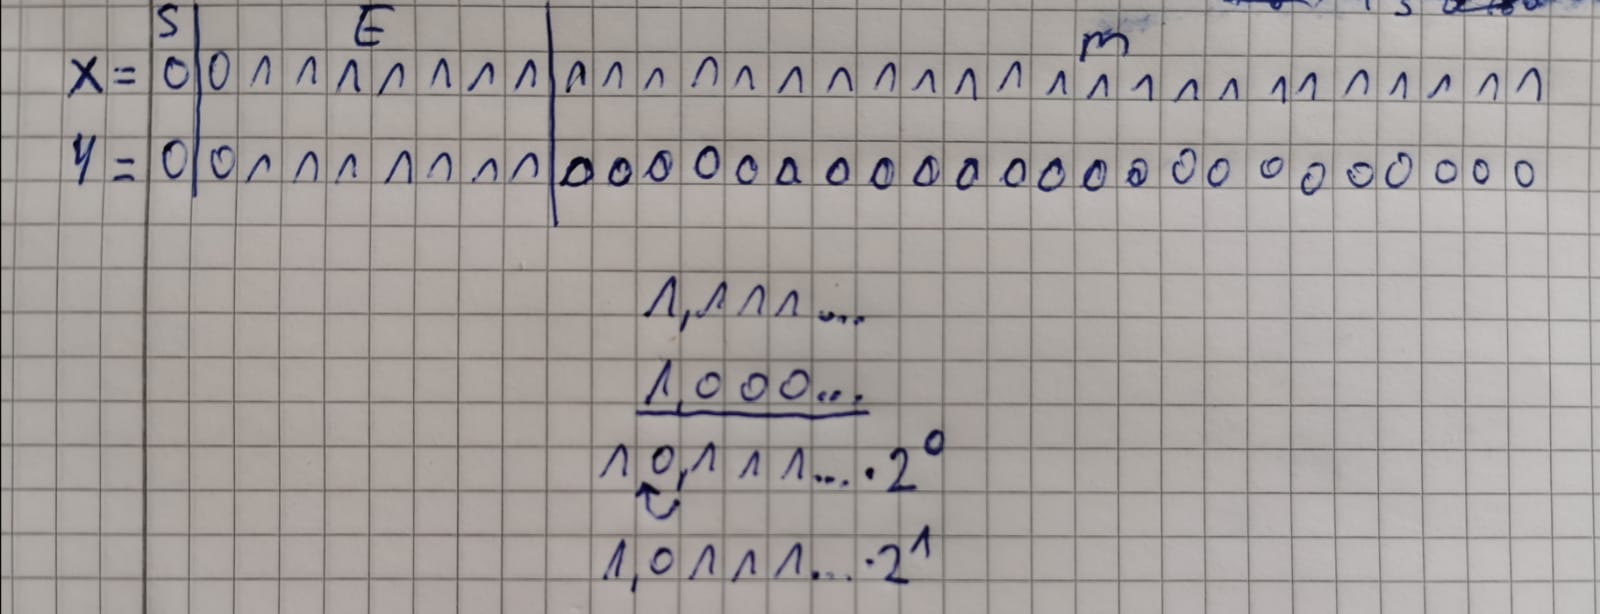 S E m
X = 0|0 1 1 1 1 1 1 1|1 1 1 1 1 1 1 1 1 1 1 1 1 1 1 1 1 1 1 1 1 1 1
Y = 0|0 1 1 1 1 1 1 1|0 0 0 0 0 0 0 0 0 0 0 0 0 0 0 0 0 0 0 0 0 0 0
1,111...
1,000...
10,111... · 2⁰
1,0111... · 2¹